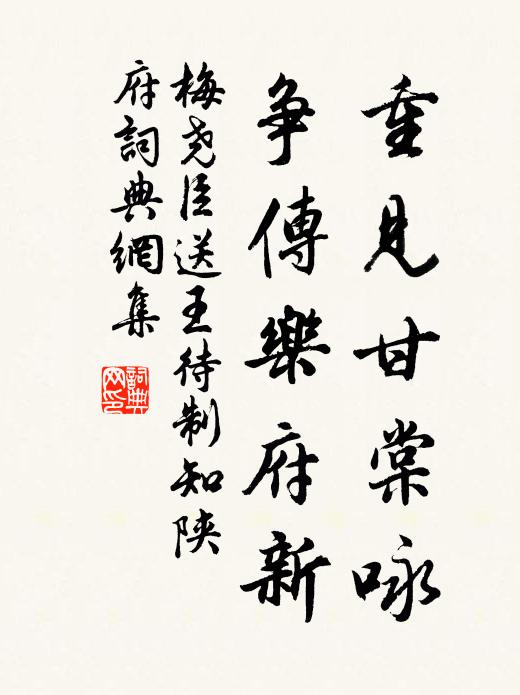 重見甘棠咏
爭傳樂府新
梅堯臣送王待制知陝
府詞典網集
詞典网印